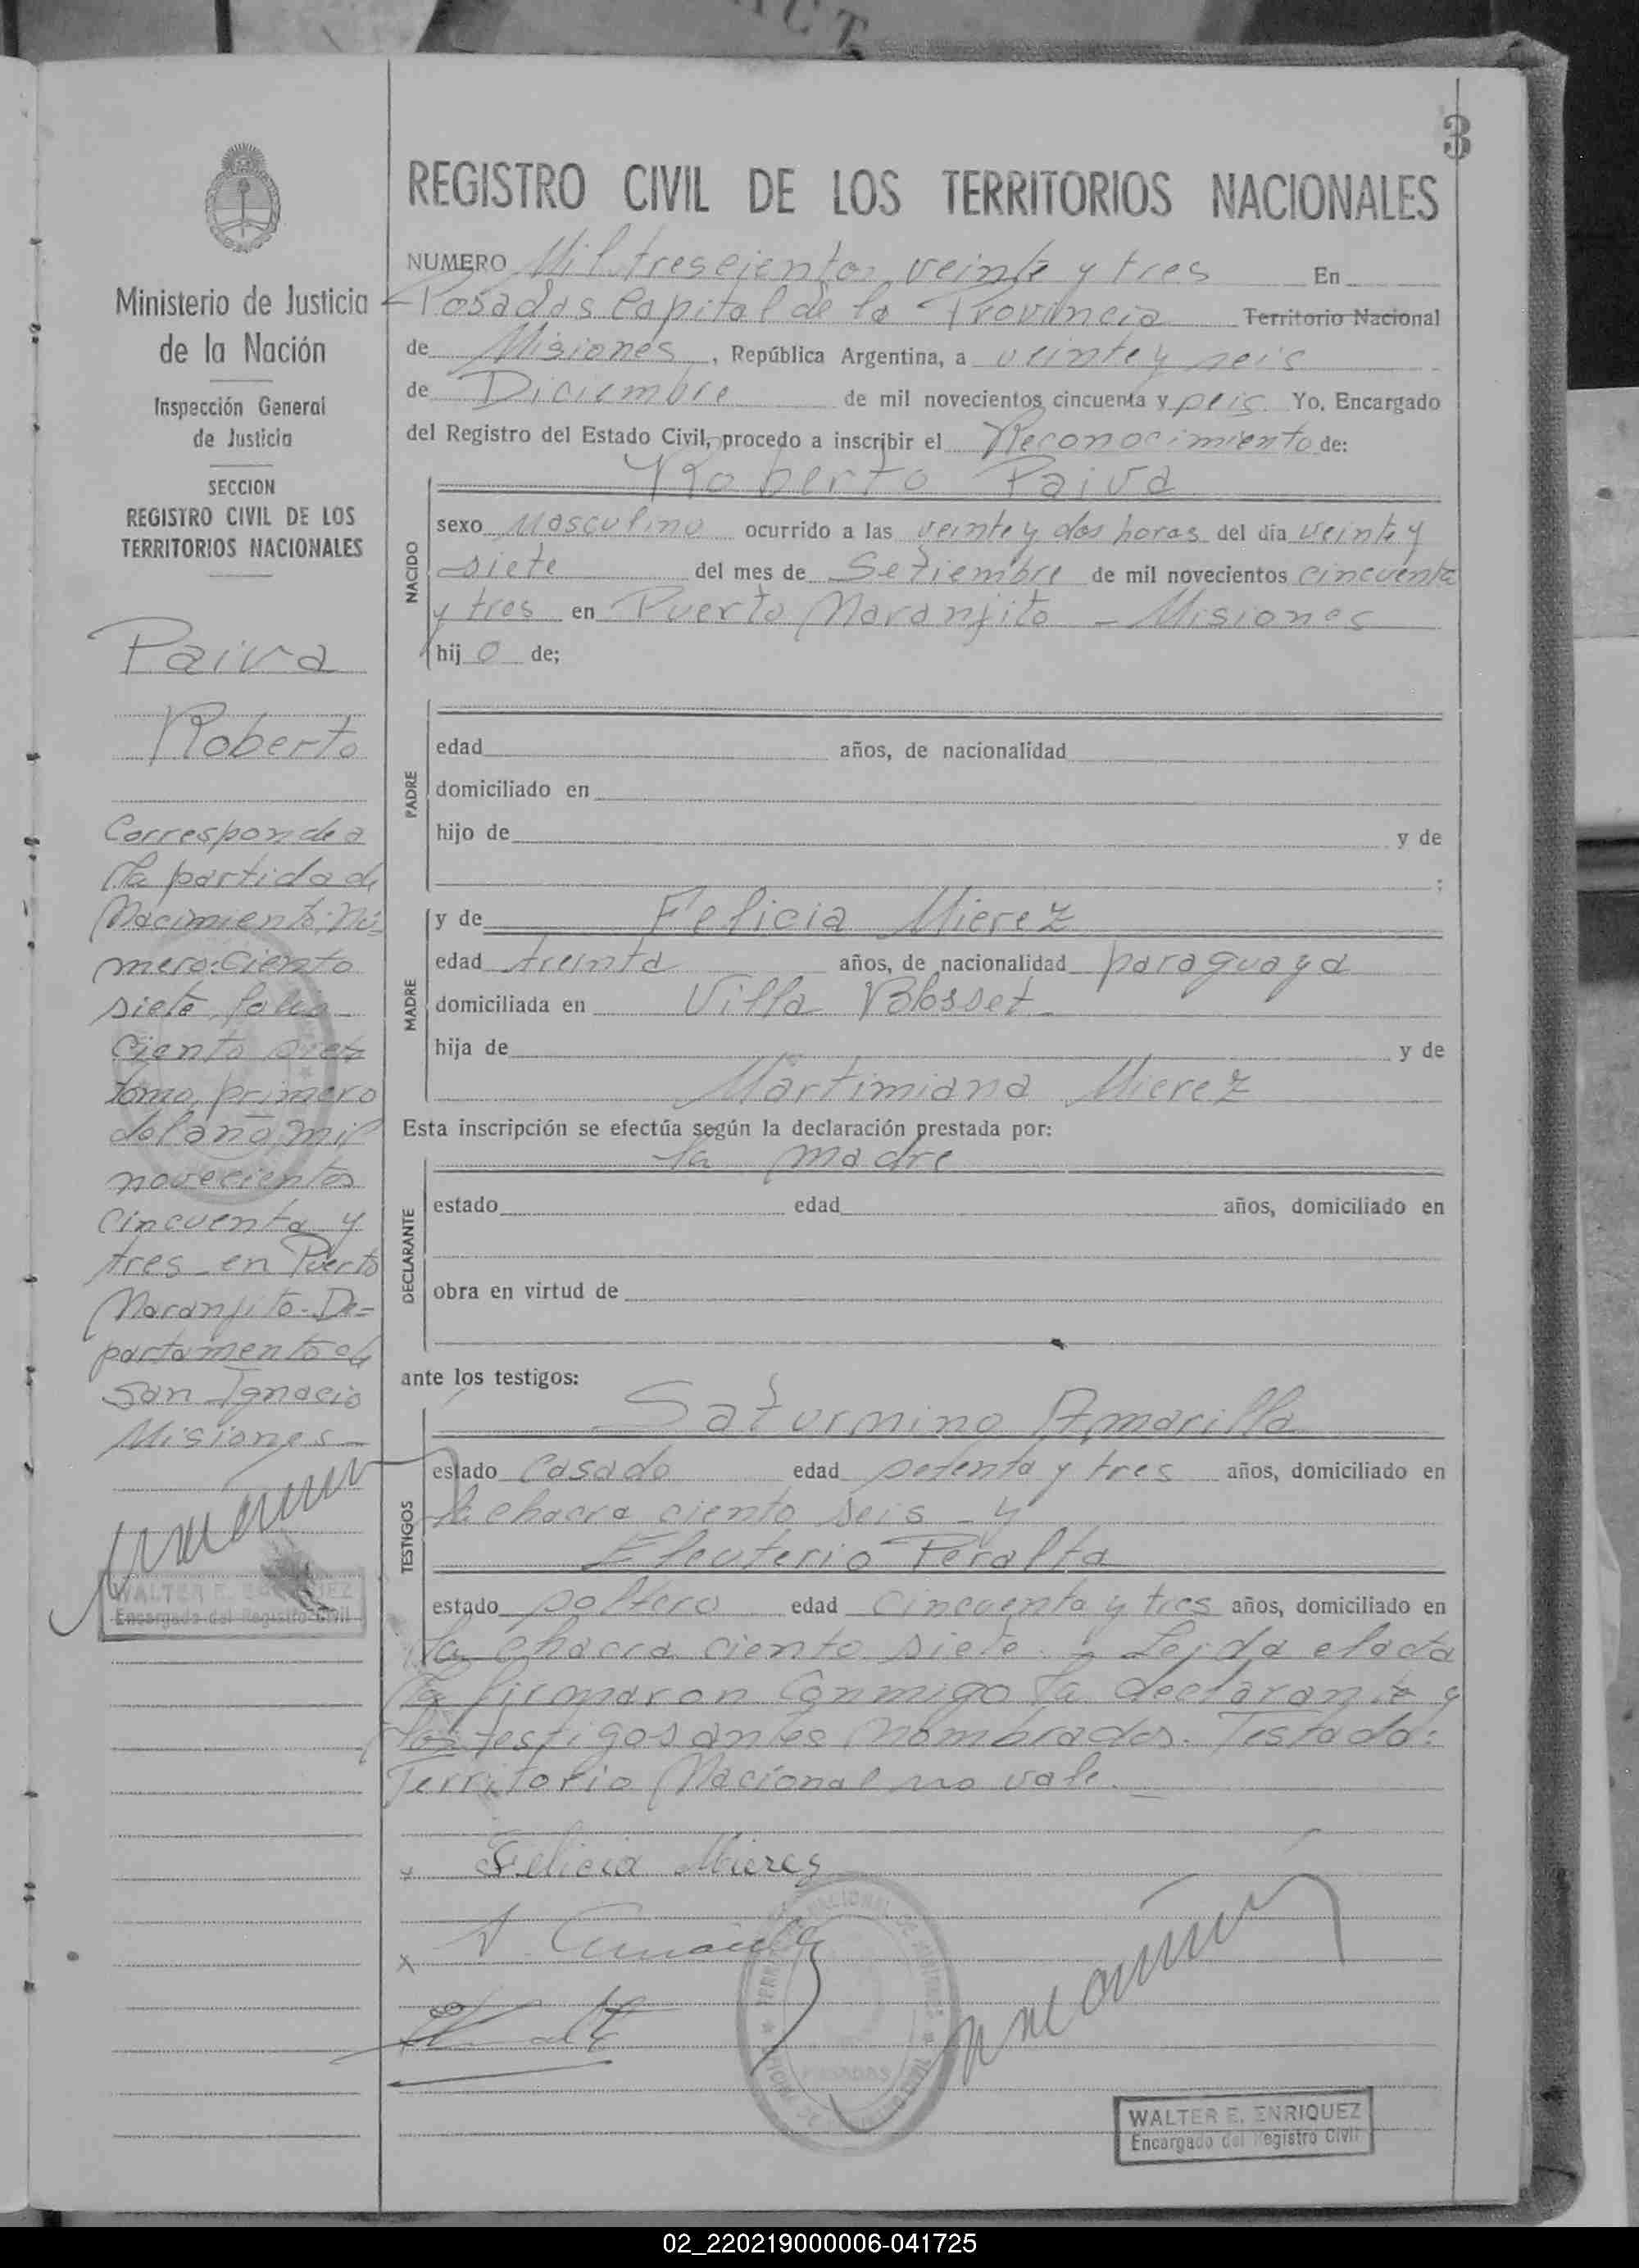 3
REGISTRO CIVIL DE LOS TERRITORIOS NACIONALES
Ministerio de Justicia
de la Nación
Inspección General
de Justicia
SECCION
REGISTRO CIVIL DE LOS
TERRITORIOS NACIONALES
Paiva
Roberto
Corresponde a
la partida de
Nacimiento: Nú-
mero: Ciento
siete, folio
Ciento siete
tomo primero
del año mil
novecientos
cincuenta y
tres en Puerto
Naranjito. De-
partamento de
San Ignacio
Misiones
WALTER E. ENRIQUEZ
Encargado del Registro Civil
NUMERO Mil trescientos veinte y tres En
Posadas Capital de la Provincia Territorio Nacional
de Misiones, República Argentina, a veinte y seis
de Diciembre de mil novecientos cincuenta y seis Yo, Encargado
del Registro del Estado Civil, procedo a inscribir el Reconocimiento de:
Roberto Paiva
NACIDO
sexo Masculino ocurrido a las veinte y dos horas del día veinte y
siete del mes de Setiembre de mil novecientos cincuenta
y tres en Puerto Naranjito - Misiones
hijo de;
PADRE
edad años, de nacionalidad
domiciliado en
hijo de y de
;
MADRE
y de Felicia Mierez
edad treinta años, de nacionalidad paraguaya
domiciliada en Villa Blosset
hija de y de
Martimiana Mierez
Esta inscripción se efectúa según la declaración prestada por:
la madre
DECLARANTE
estado edad años, domiciliado en
obra en virtud de
ante los testigos:
Saturnino Amarilla
TESTIGOS
estado Casado edad setenta y tres años, domiciliado en
la chacra ciento seis - y
Eleuterio Peralta
estado soltero edad cincuenta y tres años, domiciliado en
la chacra ciento siete. - Leida el acta
la firmaron conmigo la declarante y
los testigos antes nombrados. Testado:
Territorio Nacional no vale.
x Felicia Mieres
x S. Amarilla
POSADAS
WALTER E. ENRIQUEZ
Encargado del Registro Civil
02_220219000006-041725